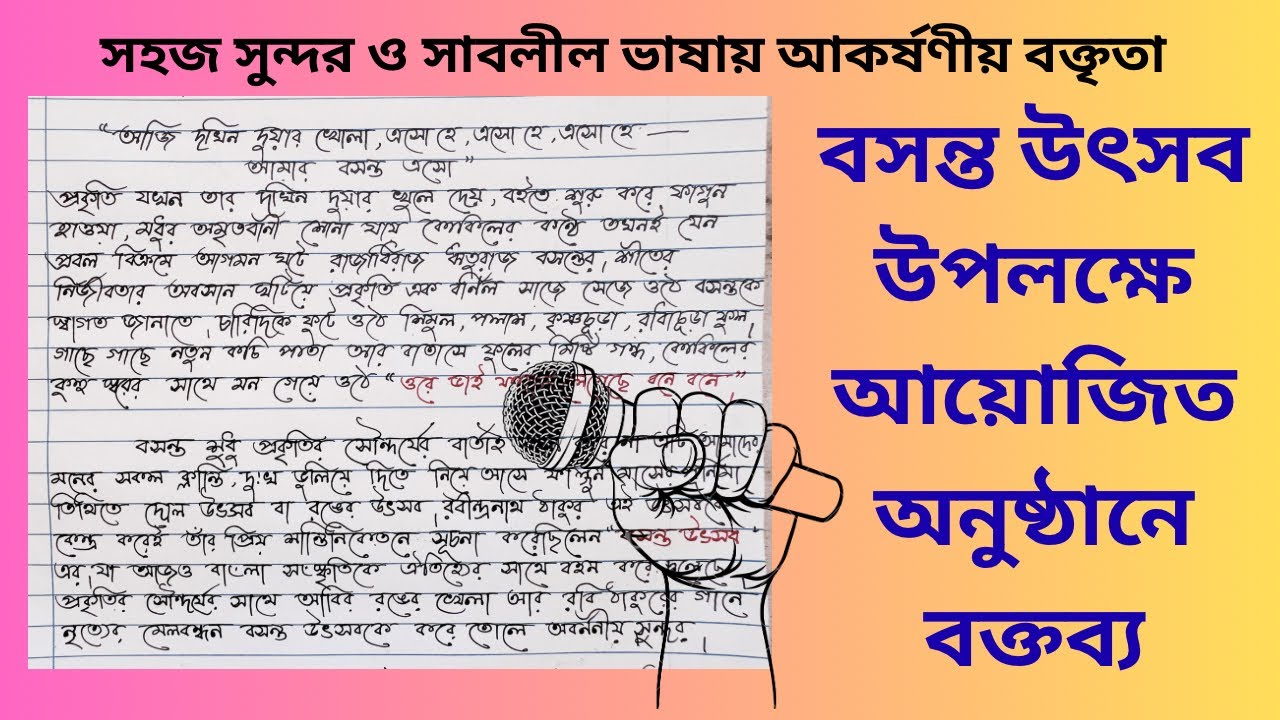 সহজ সুন্দর ও সাবলীল ভাষায় আকর্ষণীয় বক্তৃতা
"আজি দখিন দুয়ার খোলা, এসো হে, এসো হে, এসো হে —
আমার বসন্ত এসো"
প্রকৃতি যখন তার দখিন দুয়ার খুলে দেয়, বইতে শুরু করে ফাগুন
হাওয়া, মধুর অমৃতবানী শোনা যায় কোকিলের কণ্ঠে তখনই যেন
প্রবল বিক্রমে আগমন ঘটে রাজাধিরাজ ঋতুরাজ বসন্তের। শীতের
নির্জীবতার অবসান ঘটিয়ে প্রকৃতি এক বর্নিল সাজে সেজে ওঠে বসন্তকে
স্বাগত জানাতে। চারিদিকে ফুটে ওঠে শিমুল, পলাশ, কৃষ্ণচূড়া, রাধাচূড়া ফুল।
গাছে গাছে নতুন কচি পাতা আর বাতাসে ফুলের মিষ্টি গন্ধ, কোকিলের
কুহু স্বরের সাথে মন গেয়ে ওঠে "ওরে ভাই বনে বনে"।
বসন্ত শুধু প্রকৃতির সৌন্দর্যের বার্তাই না এটি আমাদের
মনের সকল ক্লান্তি, দুঃখ ভুলিয়ে দিতে নিয়ে আসে ফাল্গুন মাসের
তিথিতে দোল উৎসব বা রঙের উৎসব। রবীন্দ্রনাথ ঠাকুর এই
কেন্দ্র করেই তাঁর প্রিয় শান্তিনিকেতনে সূচনা করেছিলেন "বসন্ত উৎসব"
এর, যা আজও বাংলা সংস্কৃতিকে ঐতিহ্যের সাথে বহন করে চলেছে।
প্রকৃতির সৌন্দর্যের সাথে আবির রঙের খেলা আর রবি ঠাকুরের গানে
নৃত্যের মেলবন্ধন বসন্ত উৎসবকে করে তোলে অবর্ননীয় সুন্দর।
বসন্ত উৎসব
উপলক্ষে
আয়োজিত
অনুষ্ঠানে
বক্তব্য